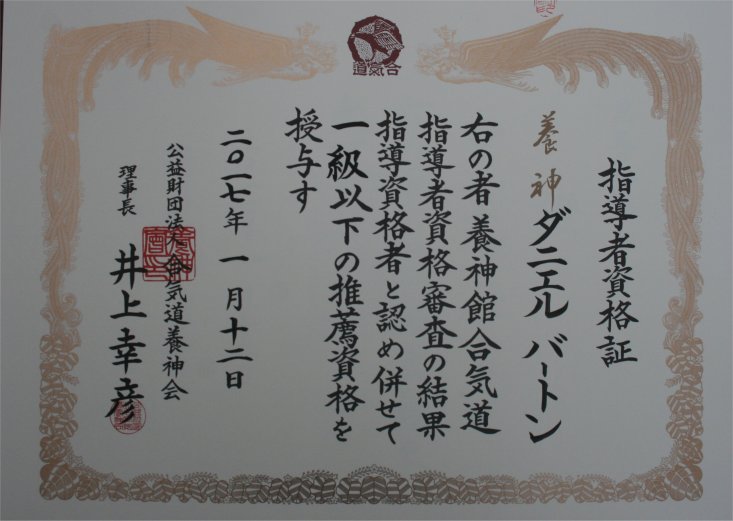 合氣道
指導者資格証
養神
ダニエル バートン
右の者 養神館合気道
指導者資格審査の結果
指導資格者と認め併せて
一級以下の推薦資格を
授与す
二〇一七年 一月十二日
公益財団法人合気道養神会
理事長 井上幸彦